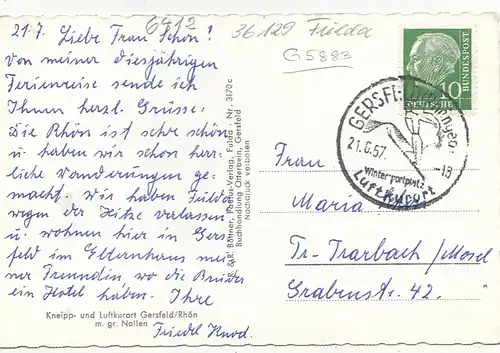 6912
36129 Fulda
G5883
21.7. Liebe Frau Schon!
Von meiner diesjährigen
Ferienreise sende ich
Ihnen herzl. Grüsse.
Die Rhön ist sehr schön
u. haben wir schon herr-
liche Wanderungen ge-
macht. Wir haben Fulda
wegen der Hitze verlassen
u. wohnen hier in Gers-
feld im Elternhaus mei-
ner Freundin, wo die Brüder
ein Hotel haben. Ihre
Friedl
Kneipp- und Luftkurort Gersfeld/Rhön
m. gr. Nallen
Verlag, Fulda - Nr. 3170c
Buchhandlung Otterbein, Gersfeld
Nachdruck verboten
10
DEUTSCHE
BUNDESPOST
GERSF
21.6.57.
-18
Wintersportplatz
Luftkurort
Frau
Maria
Tr-Trarbach/Mosel
Grabenstr. 42.